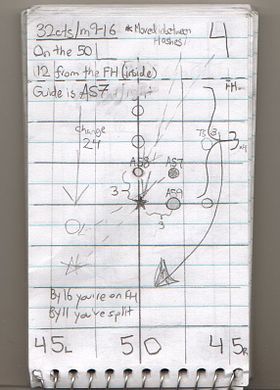 32cts/m9-16 *Moved inbetween
Hashes!
4
On the 50
12 from the FH (inside)
Guide is AS7
FH
change
24
TS
3
x4
AS8
AS7
3
AS9
3
By 16 you're on FH
By 11 you've split
45L 50 45R